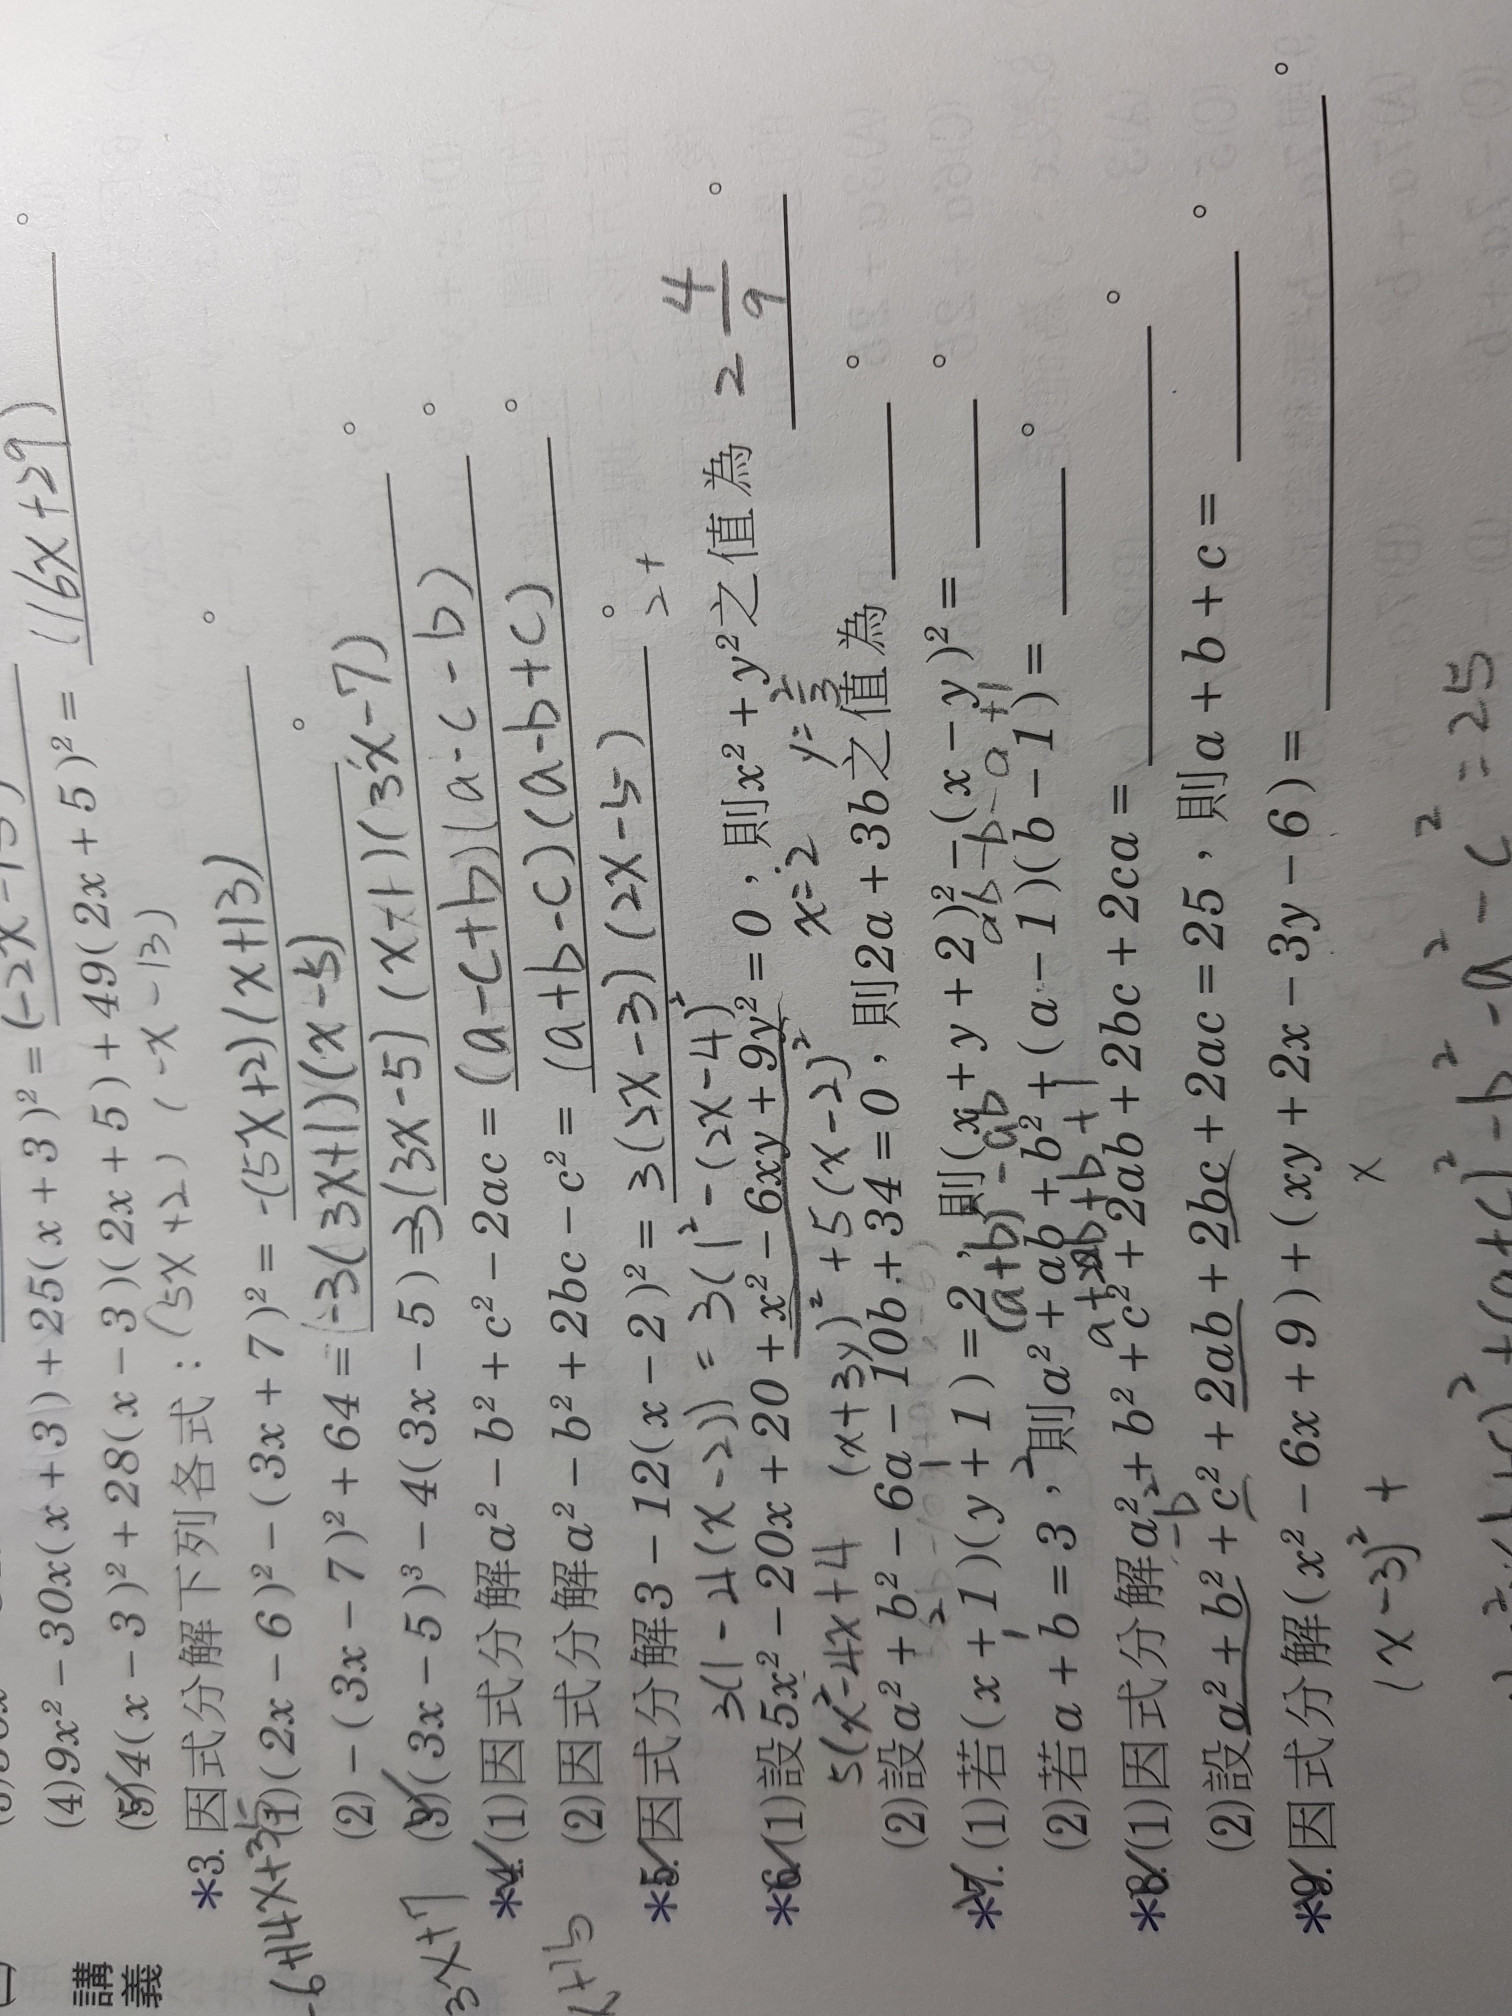 (4)9x² − 30x(x + 3) + 25(x + 3)² = (-2x-15)²。
(5)4(x − 3)² + 28(x − 3)(2x + 5) + 49(2x + 5)² = (16x+29)²。
講義
*3. 因式分解下列各式：(5x+2) (-x-13)
(1)(2x − 6)² − (3x + 7)² = -(5x+2)(x+13)。
-6+14x+35
(2) − (3x − 7)² + 64 = -3(3x+1)(x-5)。
(3)(3x − 5)³ − 4(3x − 5) = 3(3x-5)(x-1)(3x-7)。
3x+7
*4. (1)因式分解a² − b² + c² − 2ac = (a-c+b)(a-c-b)。
(2)因式分解a² − b² + 2bc − c² = (a+b-c)(a-b+c)。
*5. 因式分解3 − 12(x − 2)² = 3(2x-3)(2x-5)。
3(1-4(x-2)) = 3(1²-(2x-4)²
*6. (1)設5x² − 20x + 20 + x² − 6xy + 9y² = 0，則x² + y²之值為 2 4/9。
5(x²-4x+4 (x+3y)² +5(x-2)² x=2 y=2/3
(2)設a² + b² − 6a − 10b + 34 = 0，則2a + 3b之值為。
*7. (1)若(x + 1)(y + 1) = 2，則(x + y + 2)² − (x − y)² =。
(a+b)-ab ab-b-a+1
(2)若a + b = 3，則a² + ab + b² + (a − 1)(b − 1) =。
*8. (1)因式分解a² + b² + c² + 2ab + 2bc + 2ca =。
(2)設a² + b² + c² + 2ab + 2bc + 2ac = 25，則a + b + c =。
*9. 因式分解(x² − 6x + 9) + (xy + 2x − 3y − 6) =。
(x-3)² + x
+(a+c)²-b²-a²-c² = 25